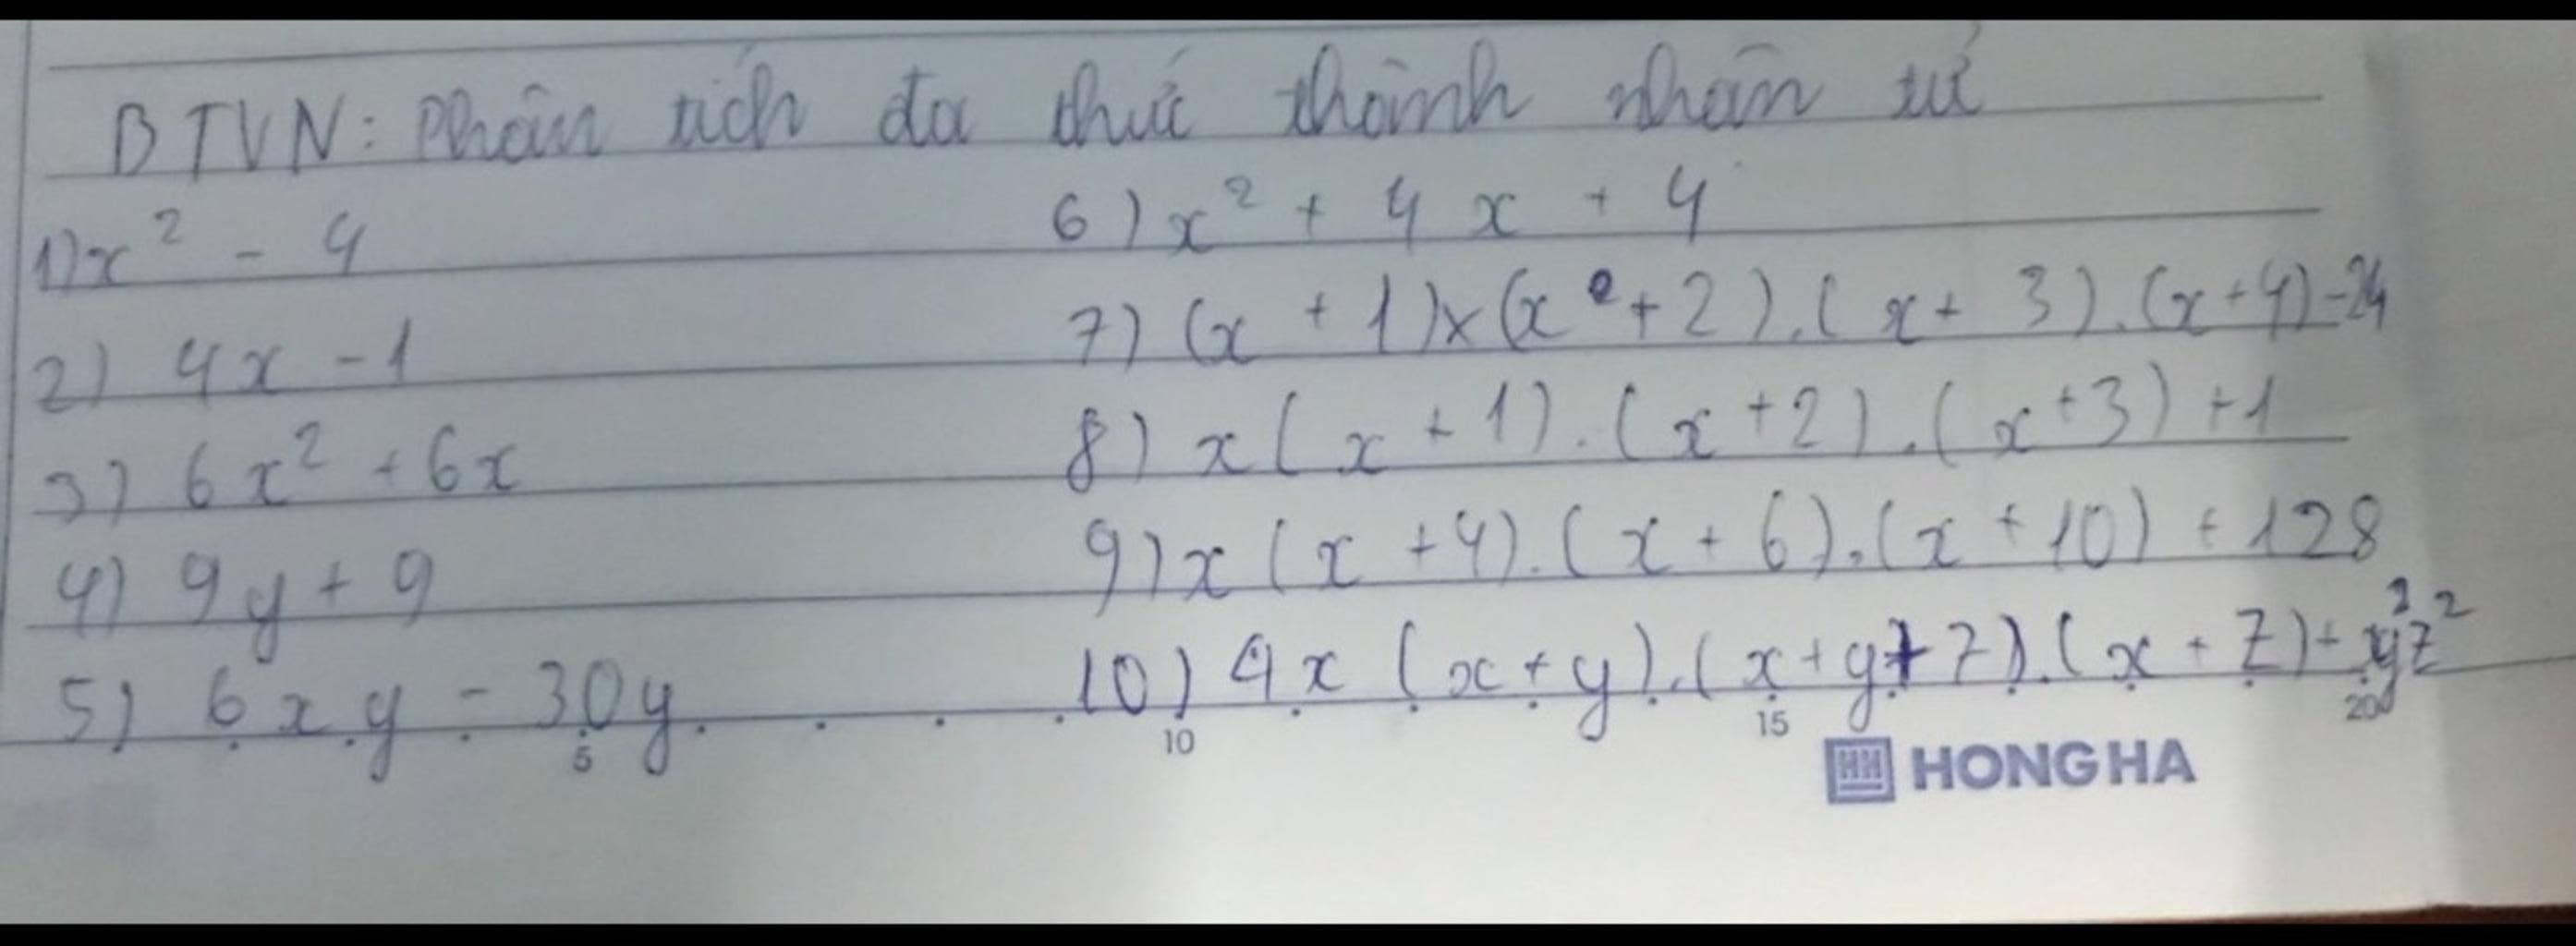 BTVN: Phân tích đa thức thành nhân tử
1) x² - 4
2) 4x - 1
3) 6x² + 6x
4) 9y + 9
5) 6xy - 30y
6) x² + 4x + 4
7) (x + 1)x(x + 2).(x + 3).(x+4)-24
8) x(x + 1).(x+2).(x+3)+1
9) x(x+4).(x+6).(x+10)+128
10) 4x(x+y).(x+y+z).(x+z)+y²z²
5 10 15 20
HH HONG HA